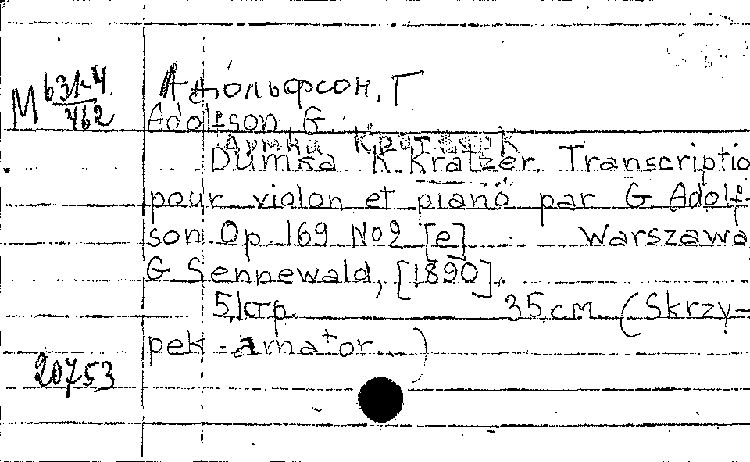 М 63л4/462
Адольфсон, Г
Adolfson G.
Думка
Dumka K. Kratzer Transcriptio
pour violon et piano par G Adolf-
son Op 169 No2 [e] Warszawa
G Sennewald, [1890].
5, стр. 35 см (Skrzy-
pek-amator.)
20753